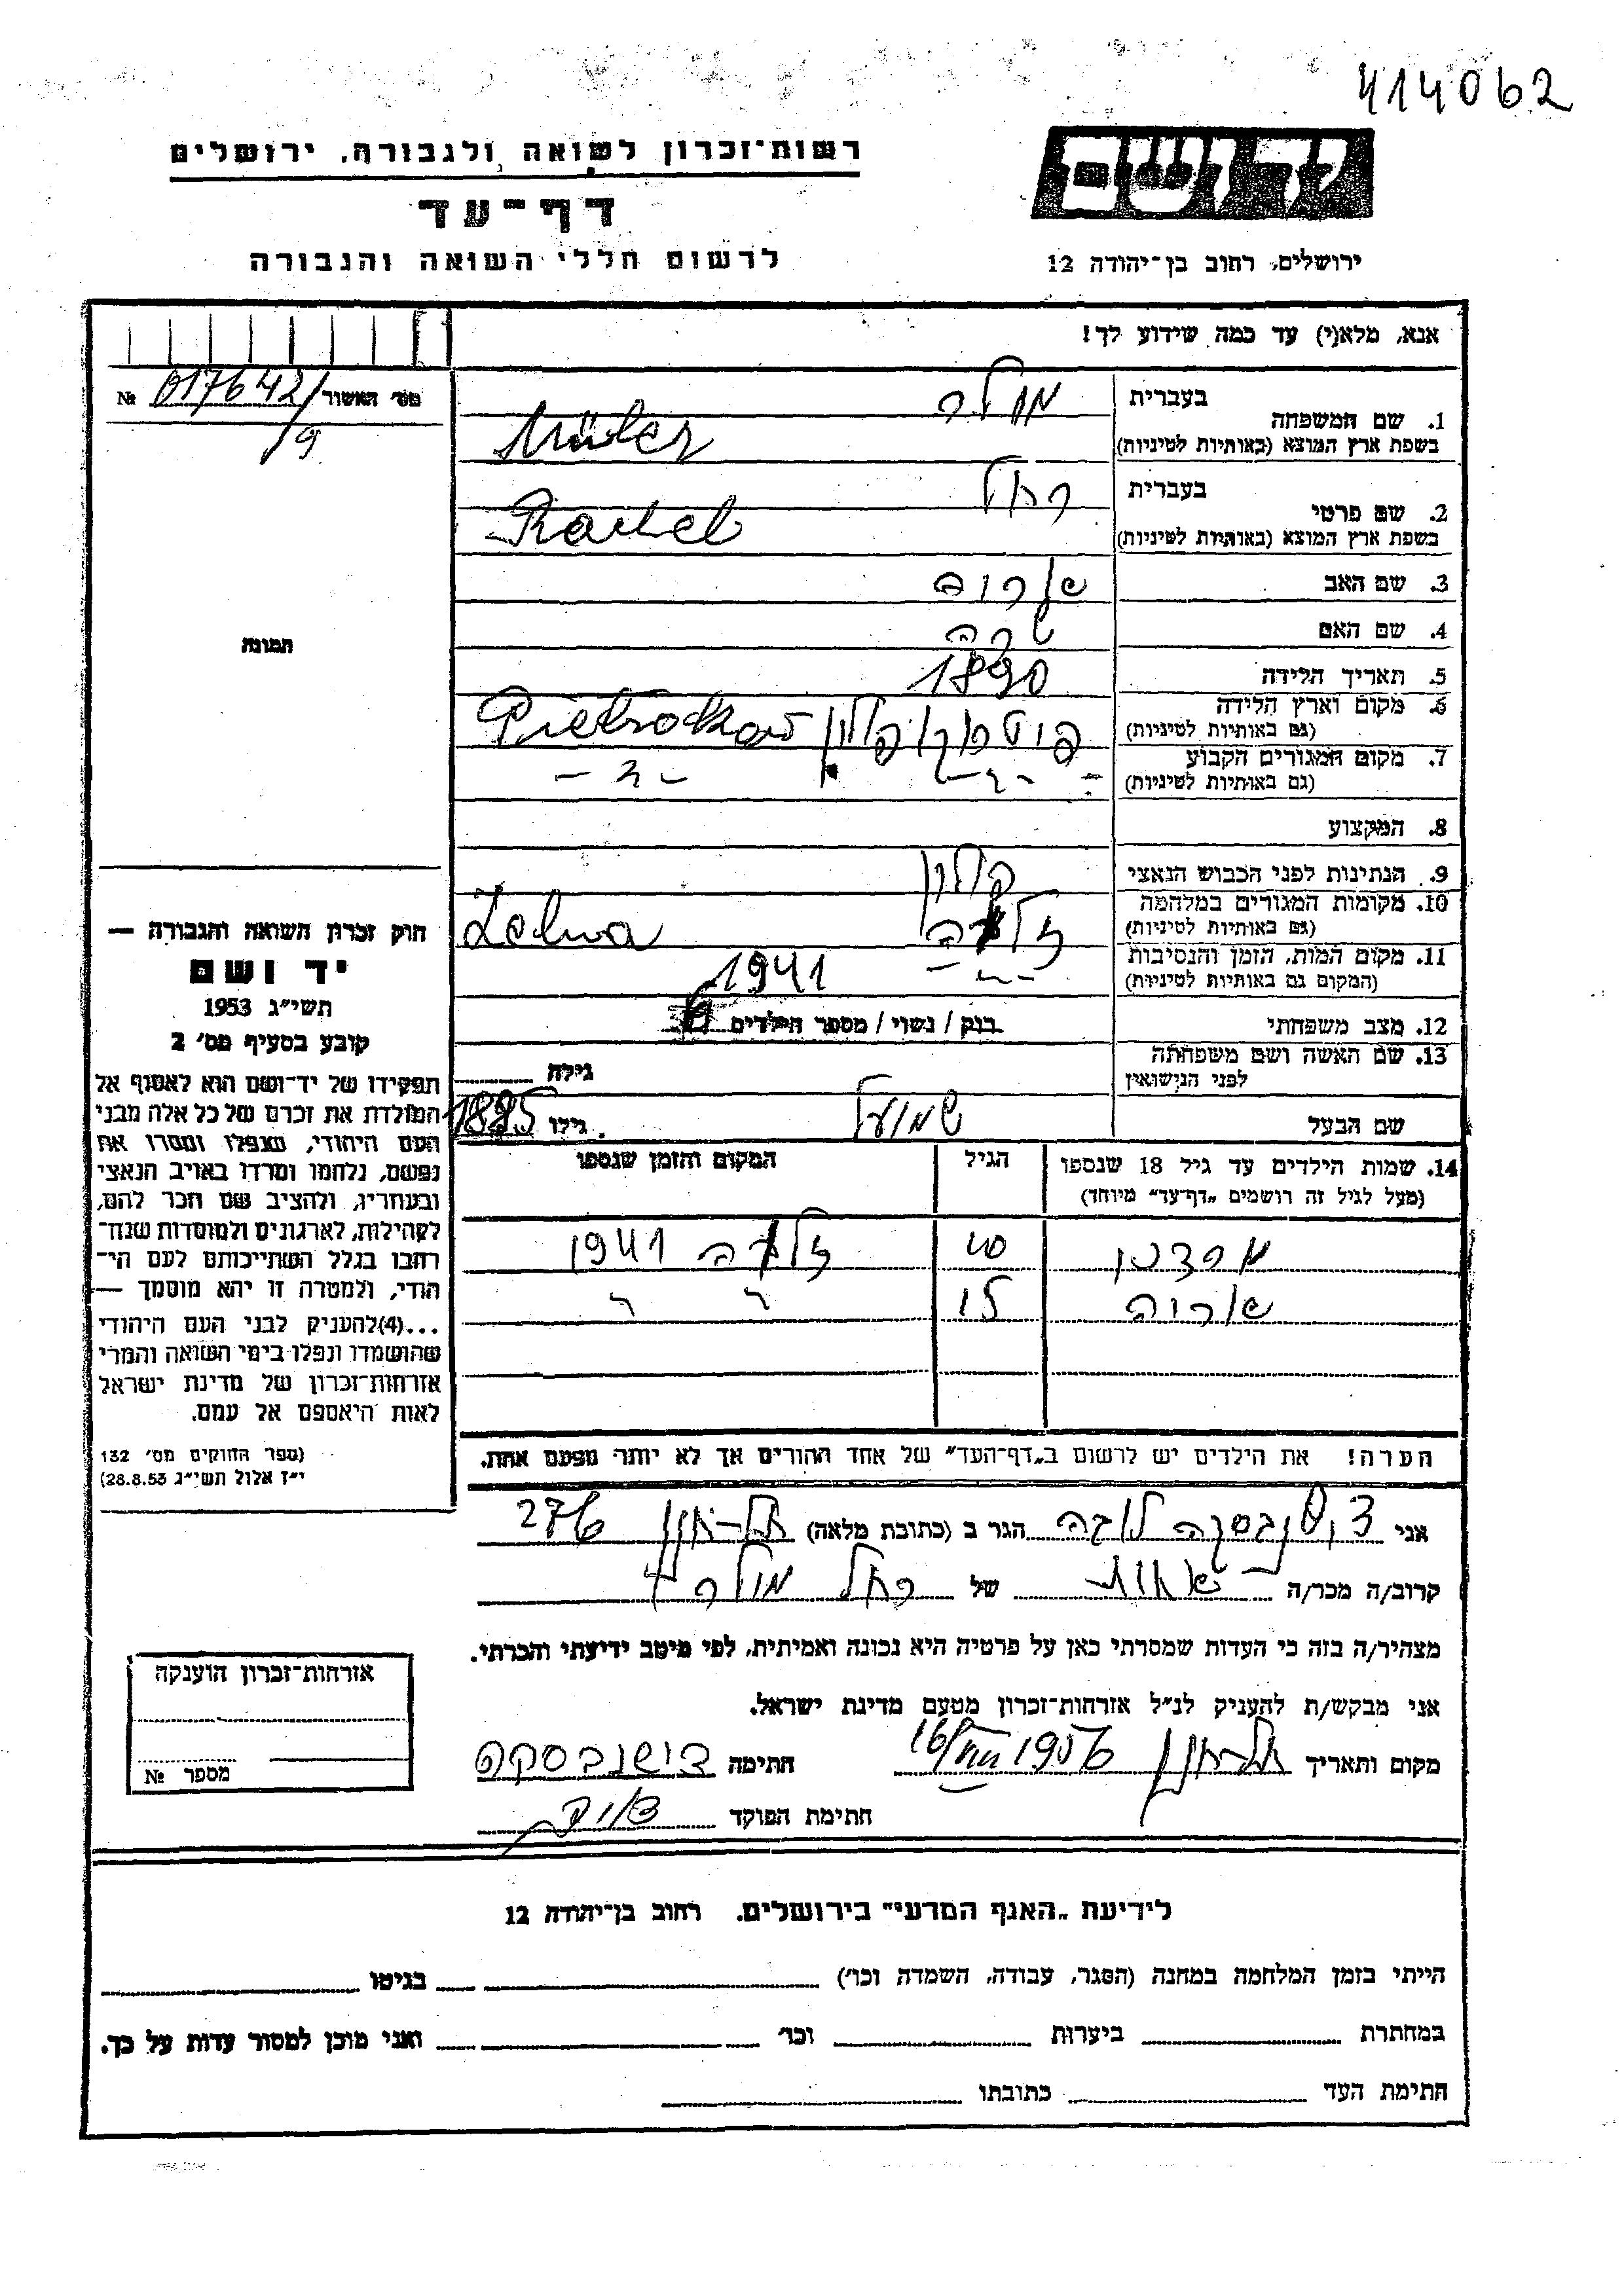 414062
יד ושם
רשות־זכרון לשואה ולגבורה, ירושלים
דף־עד
לרשום חללי השואה והגבורה
ירושלים, רחוב בן־יהודה 12
אנא, מלא(י) עד כמה שידוע לך!
מס׳ האשור 017642/ №
/9
1. שם המשפחה בעברית מולר
בשפת ארץ המוצא (באותיות לטיניות) Müler
2. שם פרטי בעברית רחל
בשפת ארץ המוצא (באותיות לטיניות) Rachel
3. שם האב אהרום
4. שם האם שרה
5. תאריך הלידה 1890
6. מקום וארץ הלידה
(גם באותיות לטיניות) פולין Pietrokow
7. מקום המגורים הקבוע
(גם באותיות לטיניות) - " - - " -
8. המקצוע
9. הנתינות לפני הכבוש הנאצי פולין
10. מקומות המגורים במלחמה
(גם באותיות לטיניות) Zelwa
11. מקום המות, הזמן והנסיבות
(המקום גם באותיות לטיניות) - " - 1941
12. מצב משפחתי רווק / נשוי / מספר הילדים
13. שם האשה ושם משפחתה
לפני הנישואין גילה
שם הבעל שמואל גילו 1895
14. שמות הילדים עד גיל 18 שנספו הגיל המקום והזמן שנספו
(מעל לגיל זה רושמים „דף־עד״ מיוחד)
מרדכי 1941
אריה 15 " "
הערה! את הילדים יש לרשום ב„דף־העד״ של אחד ההורים אך לא יותר מפעם אחת.
תמונה
חוק זכרון השואה והגבורה —
יד ושם
תשי״ג 1953
קובע בסעיף מס׳ 2
תפקידו של יד־ושם הוא לאסוף אל
המולדת את זכרם של כל אלה מבני
העם היהודי, שנפלו ומסרו את
נפשם, נלחמו ומרדו באויב הנאצי
ובעוזריו, ולהציב שם וזכר להם,
לקהילות, לארגונים ולמוסדות שנח־
רבו בגלל השתייכותם לעם הי־
הודי, ולמטרה זו יהא מוסמך —
...(4)להעניק לבני העם היהודי
שהושמדו ונפלו בימי השואה והמרי
אזרחות־זכרון של מדינת ישראל
לאות היאספם אל עמם.
(ספר החוקים מס׳ 132
י״ז אלול תשי״ג 28.8.53)
אני לובה הגר ב (כתובת מלאה)
קרוב/ה מכר/ה אחות של רחל מולר
מצהיר/ה בזה כי העדות שמסרתי כאן על פרטיה היא נכונה ואמיתית, לפי מיטב ידיעתי והכרתי.
אני מבקש/ת להעניק לנ״ל אזרחות־זכרון מטעם מדינת ישראל.
מקום ותאריך 16/VIII 1956 חתימה
חתימת הפוקד
אזרחות־זכרון הוענקה
מספר №
לידיעת „האגף המדעי״ בירושלים, רחוב בן־יהודה 12
הייתי בזמן המלחמה במחנה (הסגר, עבודה, השמדה וכו׳) בגיטו
במחתרת ביערות וכו׳ ואני מוכן למסור עדות על כך.
חתימת העד כתובתו